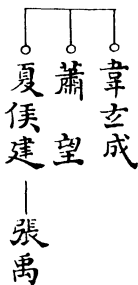 韋玄成
蕭望
夏侯建
張禹